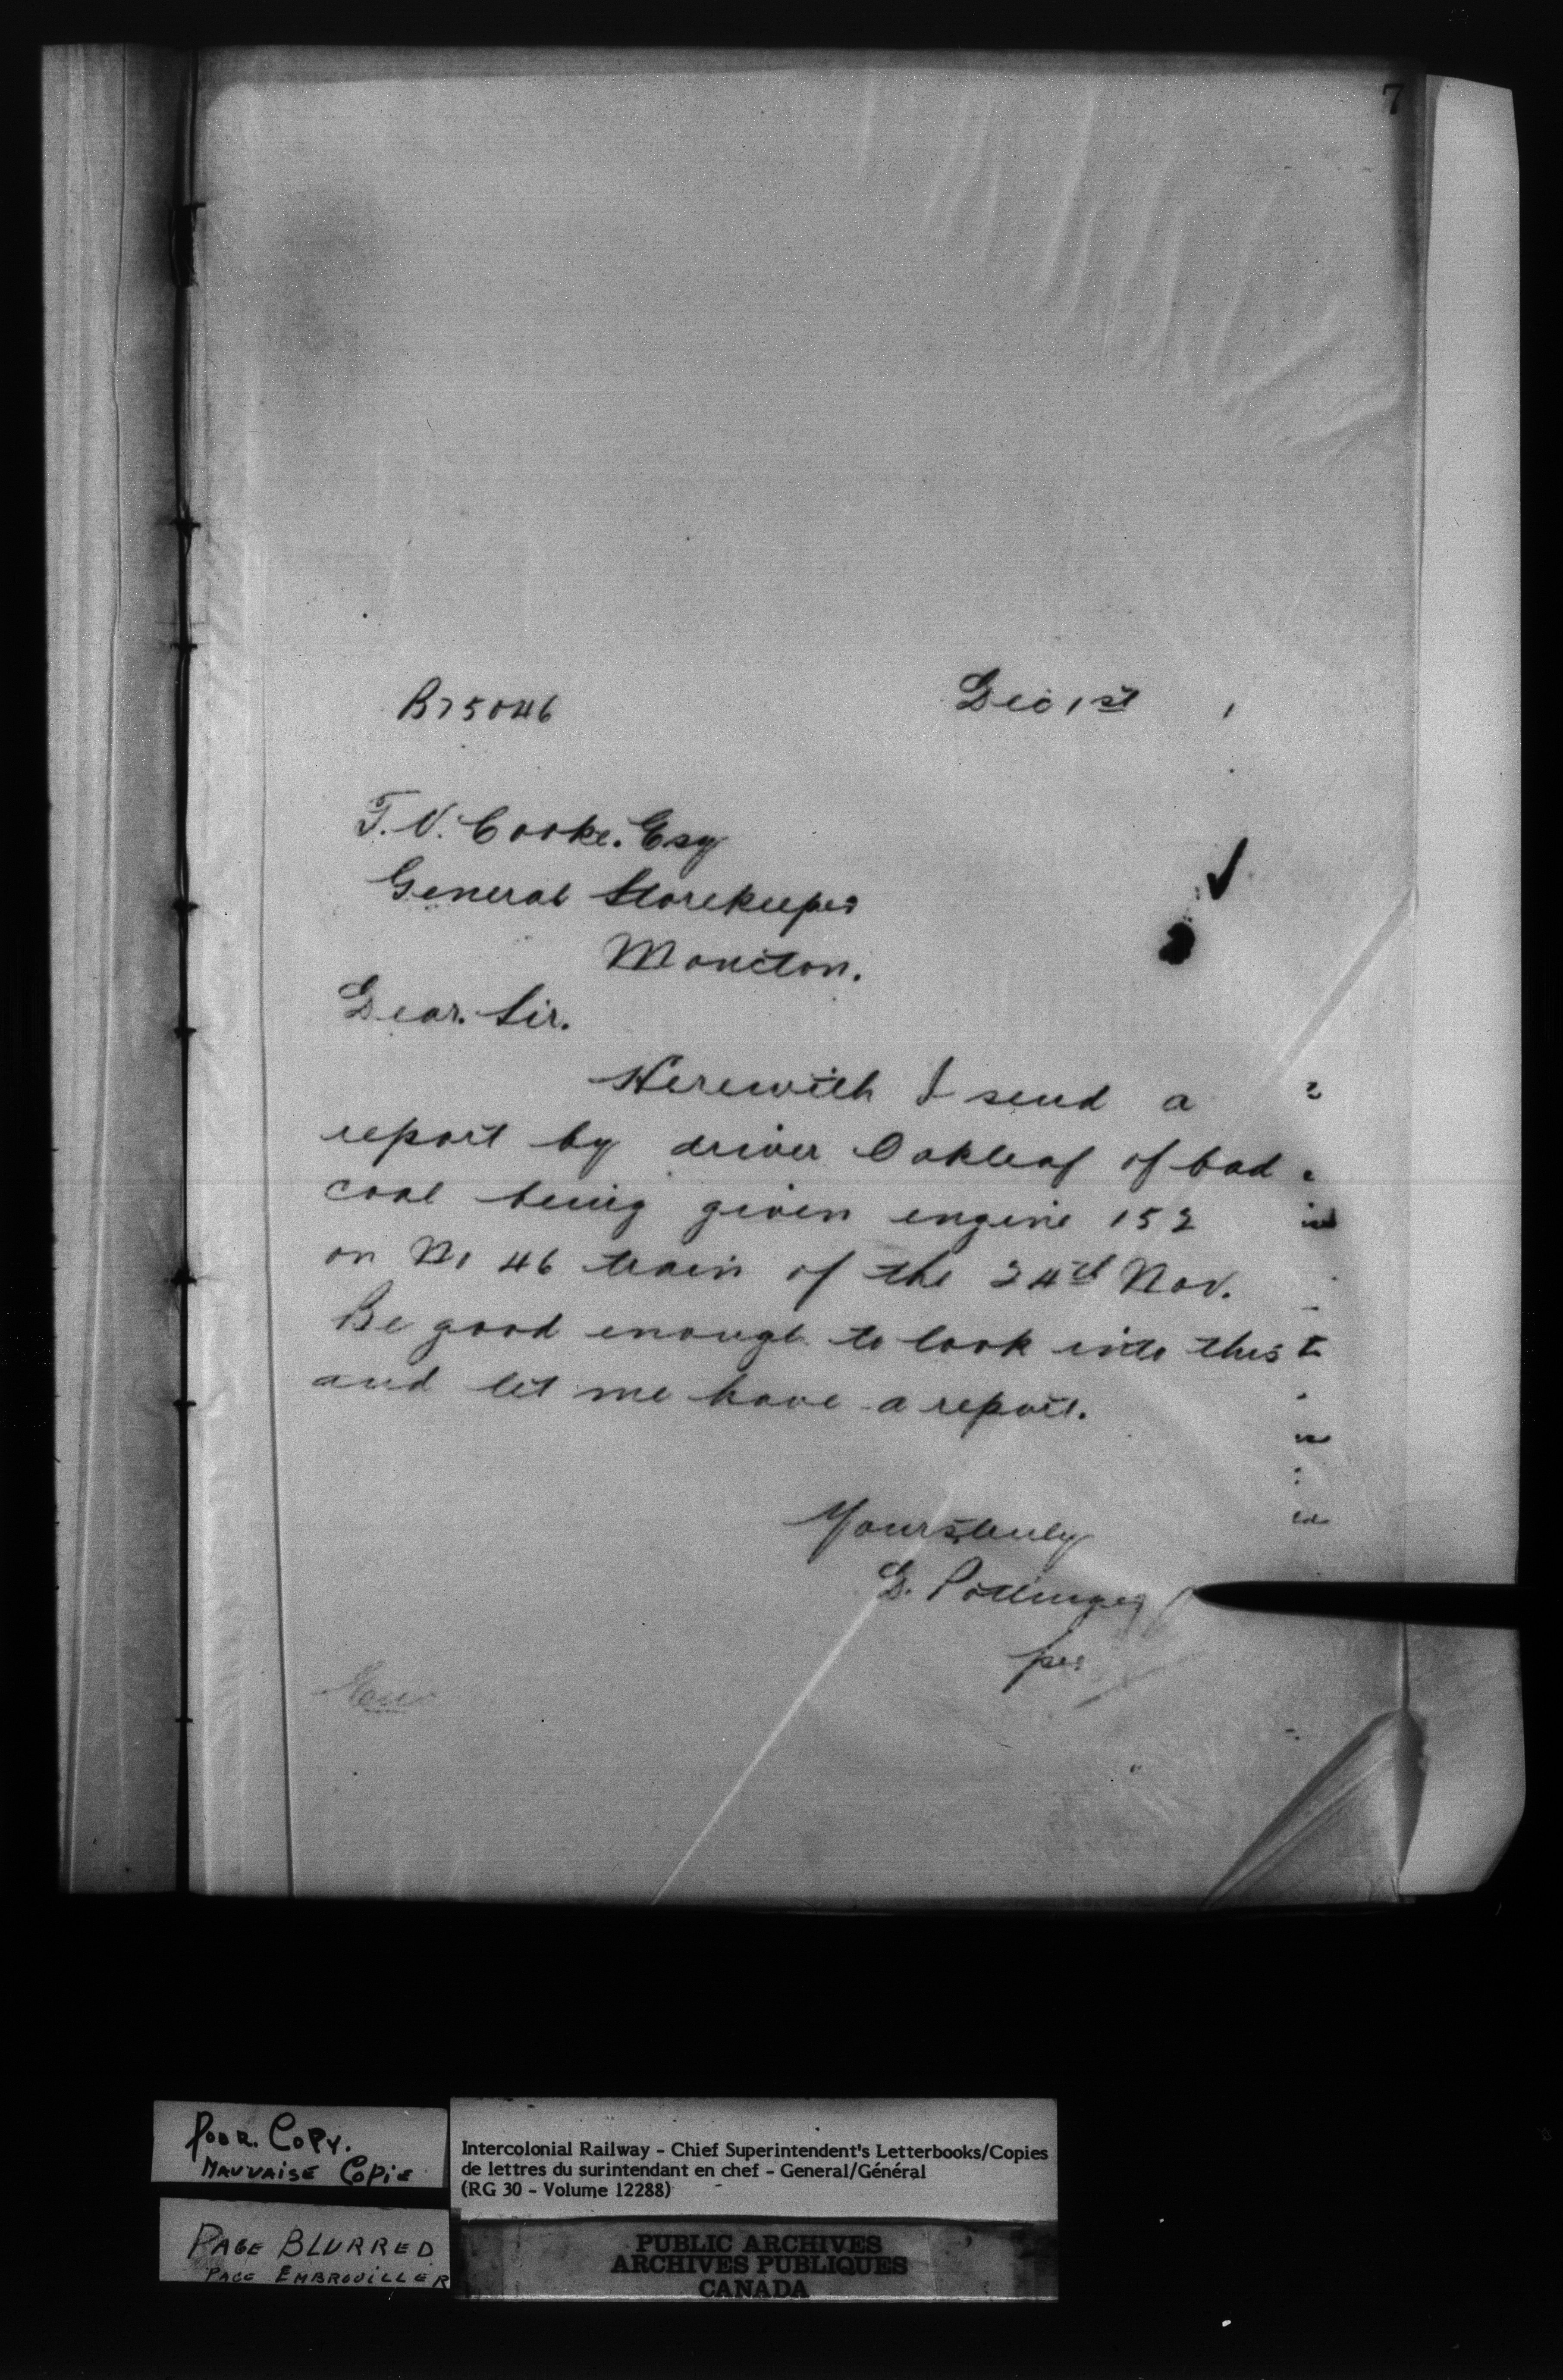 7
B75046 Dec 1st 1
T.V. Cooke. Esq
General Storekeeper
Moncton.
Dear. Sir.
Herewith I send a
report by driver Oakleaf of bad
coal being given engine 152
on No 46 train of the 24th Nov.
Be good enough to look into this
and let me have a report.
Yours truly
D. Pottinger
per
Poor. Copy.
Mauvaise Copie
Page Blurred
Page Embrouiller
Intercolonial Railway - Chief Superintendent's Letterbooks/Copies
de lettres du surintendant en chef - General/Général
(RG 30 - Volume 12288)
PUBLIC ARCHIVES
ARCHIVES PUBLIQUES
CANADA